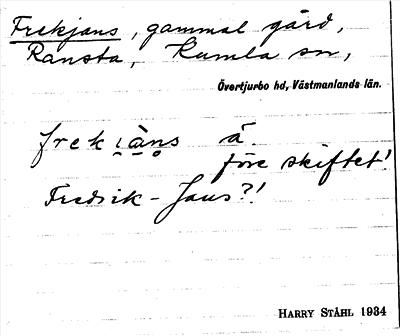 Frekjans, gammal gård,
Ransta, Kumla sn,
Övertjurbo hd, Västmanlands län.
frekịạ̀n̥s å.
före skiftet!
Fredrik-Jans?!
HARRY STÅHL 1934